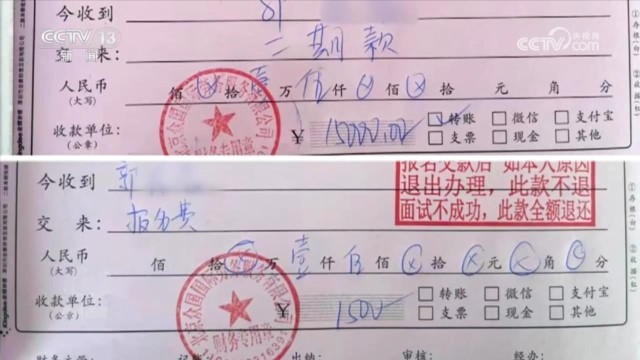 CCTV 13
新闻
央视网
CCTV.com
今收到
交 来： 二期款
人民币
(大写)
佰 拾 壹 万 伍 仟 佰 拾 元 角 分
收款单位：
(公章)
财务专用章
￥ 15000.00
转账 微信 支付宝
支票 现金 其他
①存根(白)
②收据(红)
今收到 郭
报名交款后 如本人原因
退出办理，此款不退
面试不成功，此款全额退还
交 来： 报名费
人民币
(大写)
佰 拾 万 壹 仟 伍 佰 拾 元 角 分
收款单位：
(公章)
财务专用章
1500
转账 微信 支付宝
支票 现金 其他
①存根(白)
②收据(红)
出纳： 审核： 经办：